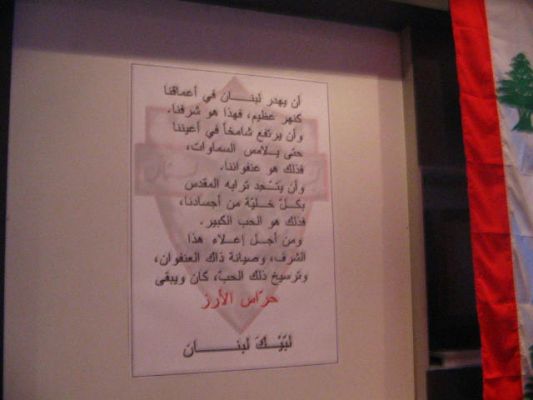 أن يهدر لبنـــان في أعماقنا
كنهر عظيم، فهذا هو شرفنا.
وأن يرتفع شامخاً في أعيننا
حتى يــلامس السماوات،
فذلك هو عنفواننا.
وأن يتـّحد ترابه المقدس
بكلّ خليّة من أجسادنا،
فذلك هو الحب الكبير.
ومن أجـــل إعلاء هذا
الشرف، وصيانة ذاك العنفوان،
وترسيخ ذلك الحبّ، كان ويبقى
حرّاس الأرز
لبّيْــكَ لبنـــــان